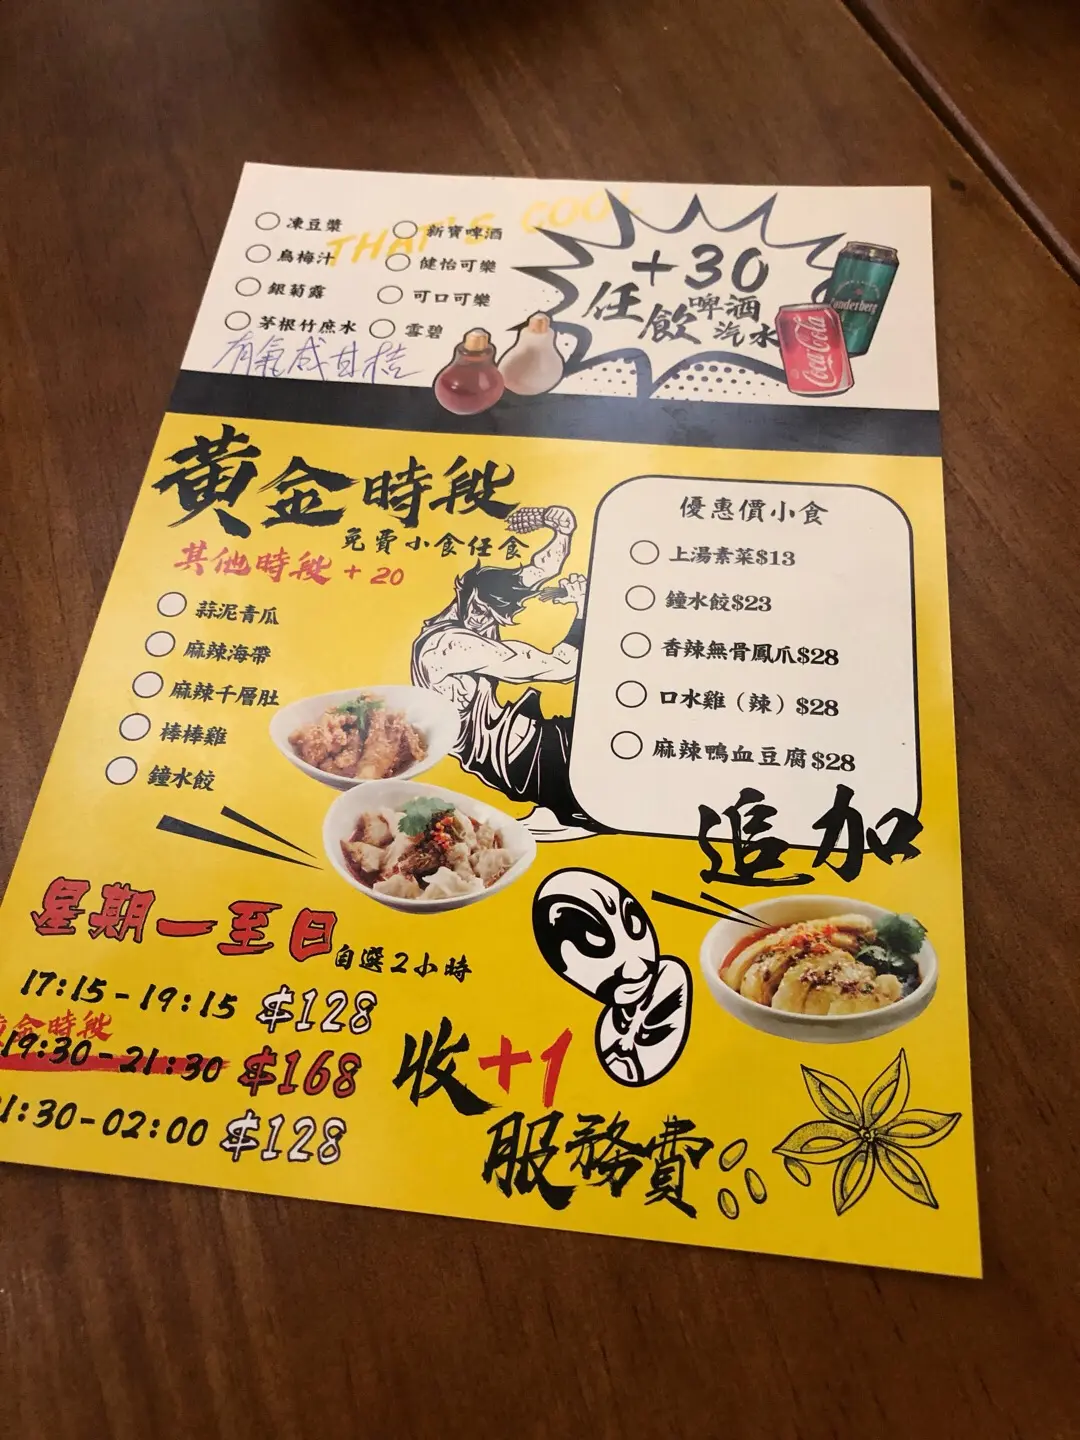 THAT'S COOL
凍豆漿
烏梅汁
銀菊露
茅根竹蔗水
新寶啤酒
健怡可樂
可口可樂
雪碧
有氣咸甘桔
+30
任飲啤酒汽水
Coca-Cola
黃金時段
免費小食任食
其他時段+20
蒜泥青瓜
麻辣海帶
麻辣千層肚
棒棒雞
鐘水餃
優惠價小食
上湯素菜$13
鐘水餃$23
香辣無骨鳳爪$28
口水雞(辣)$28
麻辣鴨血豆腐$28
追加
星期一至日
自選2小時
17:15-19:15 $128
金時段
19:30-21:30 $168
1:30-02:00 $128
收+1
服務費